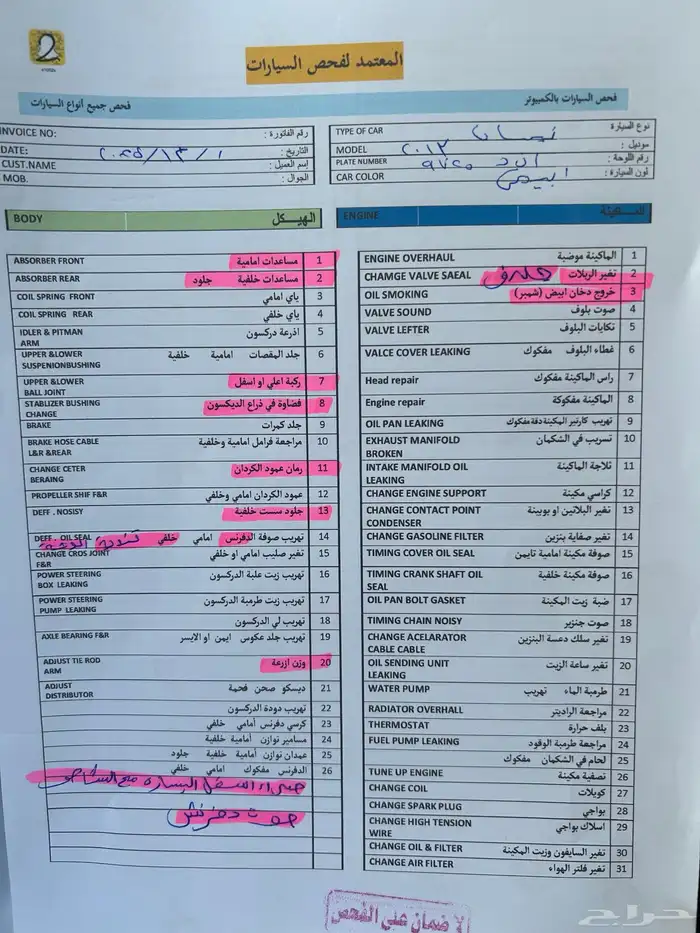 المعتمد لفحص السيارات
فحص السيارات بالكمبيوتر
فحص جميع أنواع السيارات
TYPE OF CAR نيسان نوع السيارة
MODEL ٢٠١٣ موديل :
PLATE NUMBER ٩٧٢٥ رقم اللوحة :
CAR COLOR ابيض لون السيارة :
INVOICE NO: رقم الفاتورة :
DATE: ٢٠٢٥/١٢/١ التاريخ :
CUST.NAME إسم العميل :
MOB. الجوال :
ENGINE الماكينة
ENGINE OVERHAUL الماكينة موضبة 1
CHAMGE VALVE SAEAL تغير الربلات 2
OIL SMOKING خروج دخان ابيض (شمبر) 3
VALVE SOUND صوت بلوف 4
VALVE LEFTER تكايات البلوف 5
VALCE COVER LEAKING غطاء البلوف مفكوك 6
Head repair راس الماكينة مفكوك 7
Engine repair الماكينة مفكوكة 8
OIL PAN LEAKING تهريب كارتير المكينة دقة مفكوك 9
EXHAUST MANIFOLD BROKEN تسريب في الشكمان 10
INTAKE MANIFOLD OIL LEAKING ثلاجة الماكينة 11
CHANGE ENGINE SUPPORT كراسي مكينة 12
CHANGE CONTACT POINT CONDENSER تغير البلاتين او بوبينة 13
CHANGE GASOLINE FILTER تغير صفاية بنزين 14
TIMING COVER OIL SEAL صوفة مكينة امامية تايمن 15
TIMING CRANK SHAFT OIL SEAL صوفة مكينة خلفية 16
OIL PAN BOLT GASKET ضبة زيت المكينة 17
TIMING CHAIN NOISY صوت جنزير 18
CHANGE ACELARATOR CABLE CABLE تغير سلك دعسة البنزين 19
OIL SENDING UNIT LEAKING تغير ساعة الزيت 20
WATER PUMP طرمبة الماء تهريب 21
RADIATOR OVERHALL مراجعة الراديتر 22
THERMOSTAT بلف حرارة 23
FUEL PUMP LEAKING مراجعة طرمبة الوقود 24
لحام في الشكمان مفكوك 25
TUNE UP ENGINE تصفية مكينة 26
CHANGE COIL كويلات 27
CHANGE SPARK PLUG بواجي 28
CHANGE HIGH TENSION WIRE اسلاك بواجي 29
CHANGE OIL & FILTER تغير السايفون وزيت المكينة 30
CHANGE AIR FILTER تغير فلتر الهواء 31
BODY الهيكل
ABSORBER FRONT مساعدات امامية 1
ABSORBER REAR مساعدات خلفية جلود 2
COIL SPRING FRONT ياي امامي 3
COIL SPRING REAR ياي خلفي 4
IDLER & PITMAN ARM اذرعة دركسون 5
UPPER &LOWER SUSPENIONBUSHING جلد المقصات امامية خلفية 6
UPPER &LOWER BALL JOINT ركبة اعلي او اسفل 7
STABLIZER BUSHING CHANGE فضاوة في ذراع الديكسون 8
BRAKE جلد كمرات 9
BRAKE HOSE CABLE L&R &REAR مراجعة فرامل امامية وخلفية 10
CHANGE CETER BERAING رمان عمود الكردان 11
PROPELLER SHIF F&R عمود الكردان امامي وخلفي 12
DEFF . NOSISY جلود سست خلفية 13
DEFF . OIL SEAL تهريب صوفة الدفرنس امامي خلفي 14
CHANGE CROS JOINT F&R تغير صليب امامي او خلفي 15
POWER STEERING BOX LEAKING تهريب زيت علبة الدركسون 16
POWER STEERING PUMP LEAKING تهريب زيت طرمبة الدركسون 17
تهريب لي الدركسون 18
AXLE BEARING F&R تهريب جلد عكوس ايمن او الايسر 19
ADJUST TIE ROD ARM وزن ازرعة 20
ADJUST DISTRIBUTOR ديسكو صحن فحمة 21
تهريب دودة الدركسون 22
كرسي دفرنس أمامي خلفي 23
مسامير توازن أمامية خلفية 24
عمدان توازن أمامية خلفية جلود 25
الدفرنس مفكوك امامي خلفي 26
صوت دفرنش
لا ضمان على الفحص
حراج